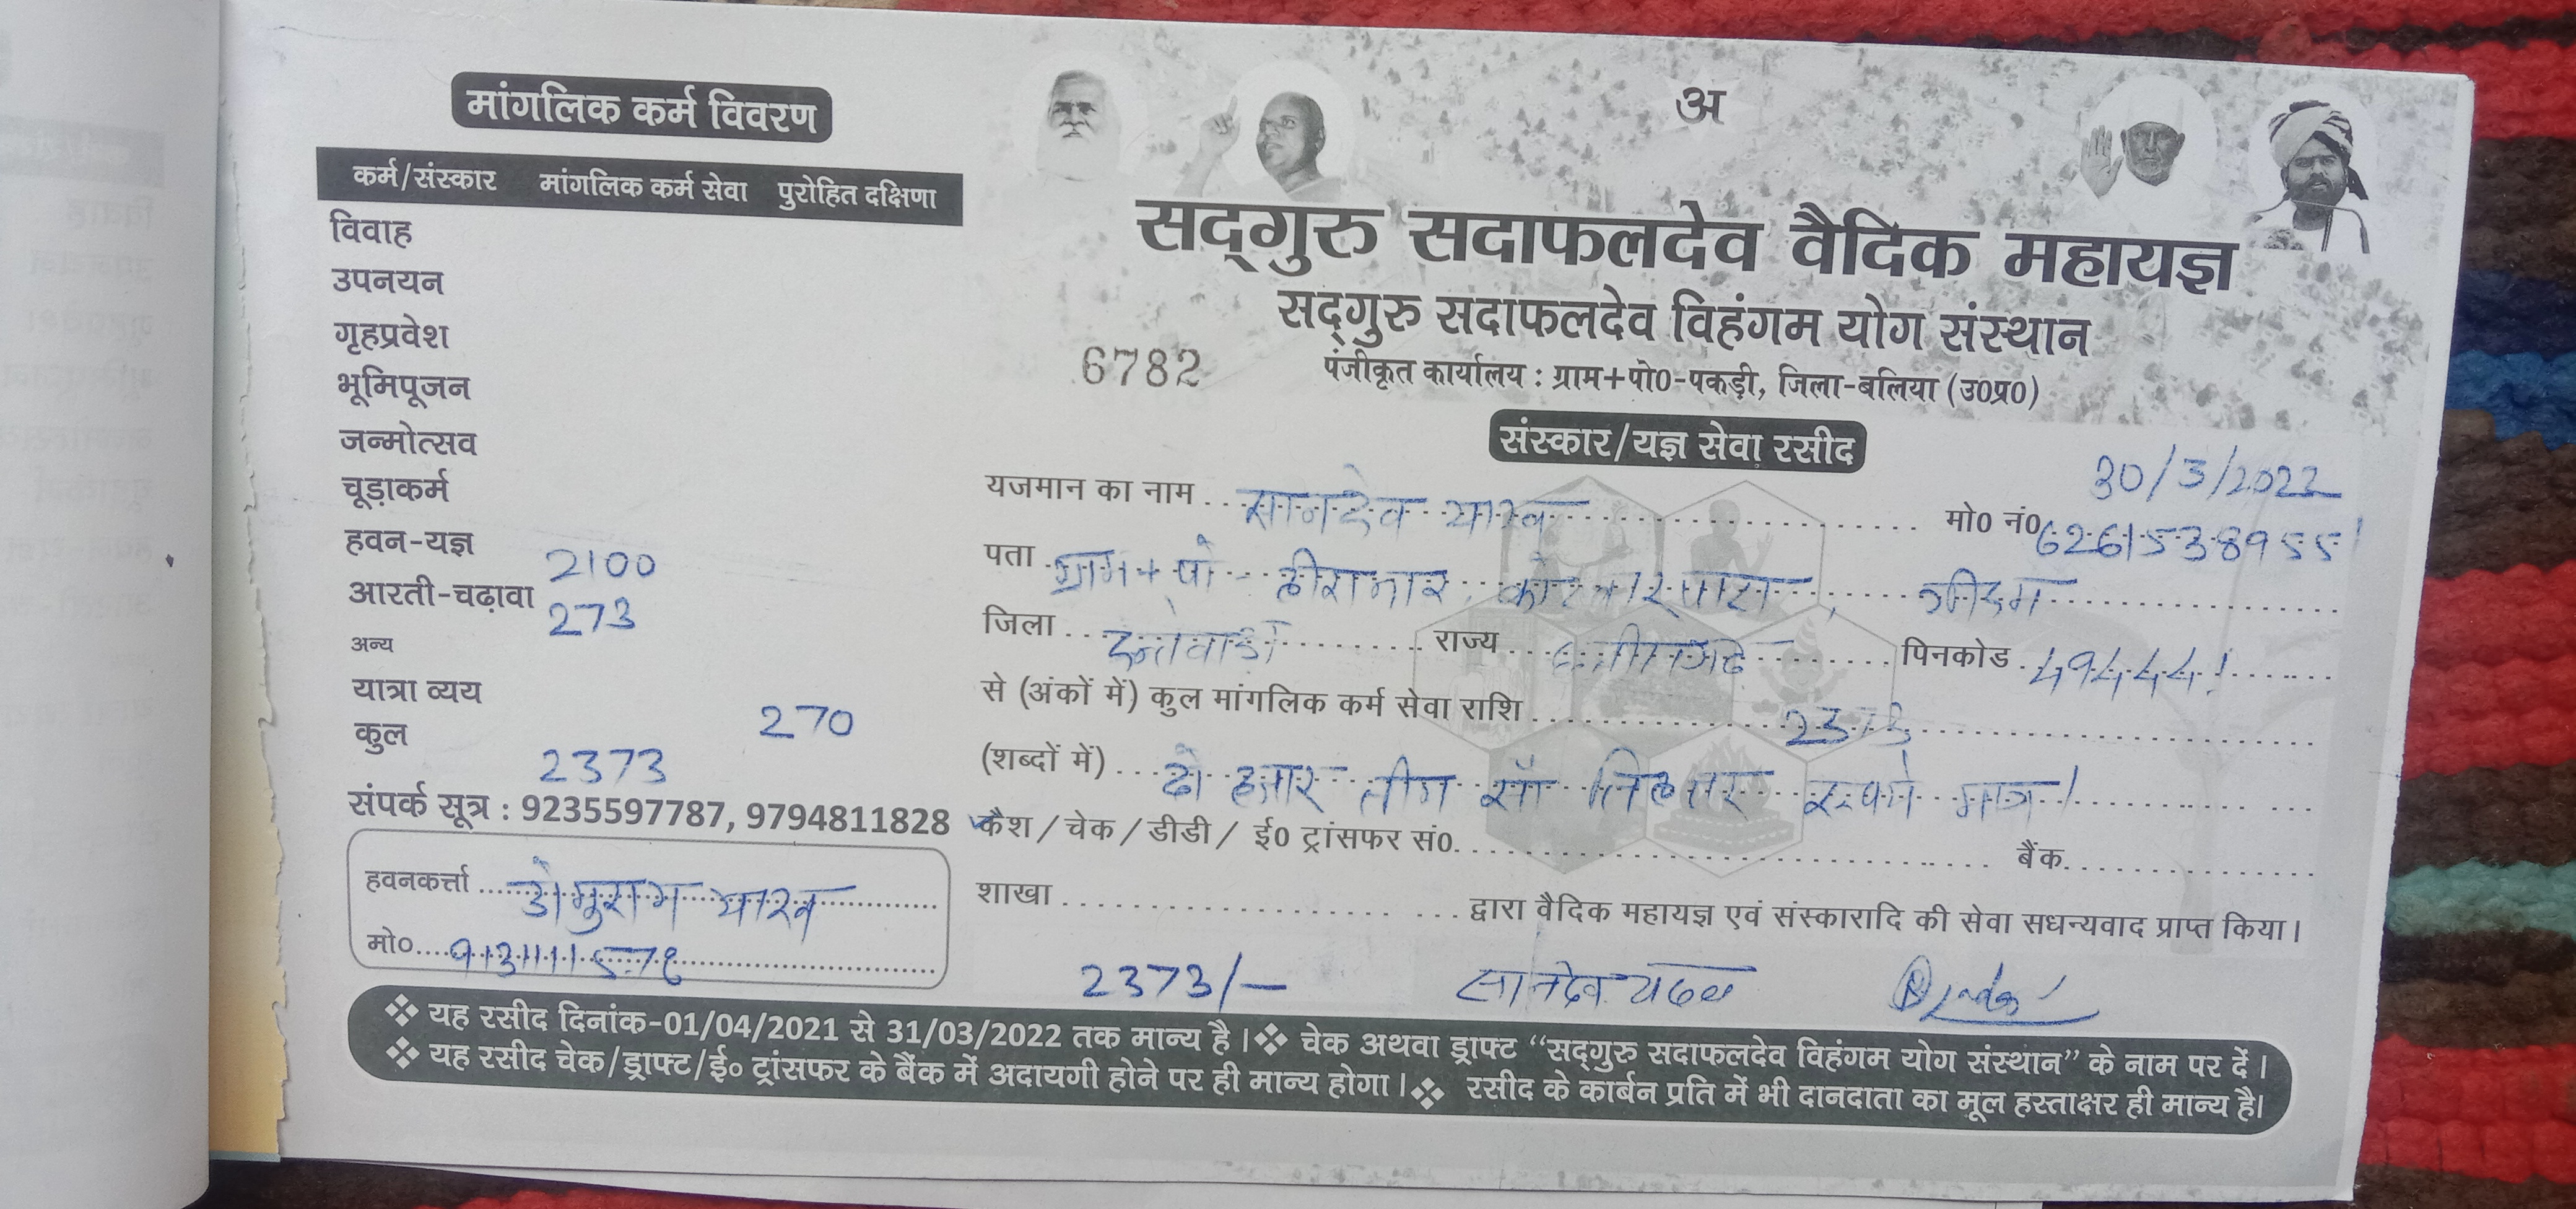 मांगलिक कर्म विवरण
कर्म/संस्कार मांगलिक कर्म सेवा पुरोहित दक्षिणा
विवाह
उपनयन
गृहप्रवेश
भूमिपूजन
जन्मोत्सव
चूड़ाकर्म
हवन-यज्ञ 2100
आरती-चढ़ावा 273
अन्य
यात्रा व्यय 270
कुल 2373
संपर्क सूत्र : 9235597787, 9794811828
हवनकर्त्ता ..... यादव
मो०....9131111578
अ
सद्गुरु सदाफलदेव वैदिक महायज्ञ
सद्गुरु सदाफलदेव विहंगम योग संस्थान
6782 पंजीकृत कार्यालय : ग्राम+पो0-पकड़ी, जिला-बलिया (उ0प्र0)
संस्कार/यज्ञ सेवा रसीद
30/3/2022
यजमान का नाम ... सानदेव यादव ..... मो0 नं0 6261538955
पता . ग्राम + पो - हीरानार
जिला .... दन्तेवाड़ा ..... राज्य ... छत्तीसगढ़ ..... पिनकोड . 494441
से (अंकों में) कुल मांगलिक कर्म सेवा राशि ..... 2373
(शब्दों में) .... दो हजार तीन सौ तिहत्तर रूपये मात्र /
कैश / चेक / डीडी / ई0 ट्रांसफर सं0..... बैंक.....
शाखा ..... द्वारा वैदिक महायज्ञ एवं संस्कारादि की सेवा सधन्यवाद प्राप्त किया।
2373/- सानदेव यादव
❖ यह रसीद दिनांक-01/04/2021 से 31/03/2022 तक मान्य है। ❖ चेक अथवा ड्राफ्ट “सद्गुरु सदाफलदेव विहंगम योग संस्थान” के नाम पर दें।
❖ यह रसीद चेक/ड्राफ्ट/ई० ट्रांसफर के बैंक में अदायगी होने पर ही मान्य होगा। ❖ रसीद के कार्बन प्रति में भी दानदाता का मूल हस्ताक्षर ही मान्य है।